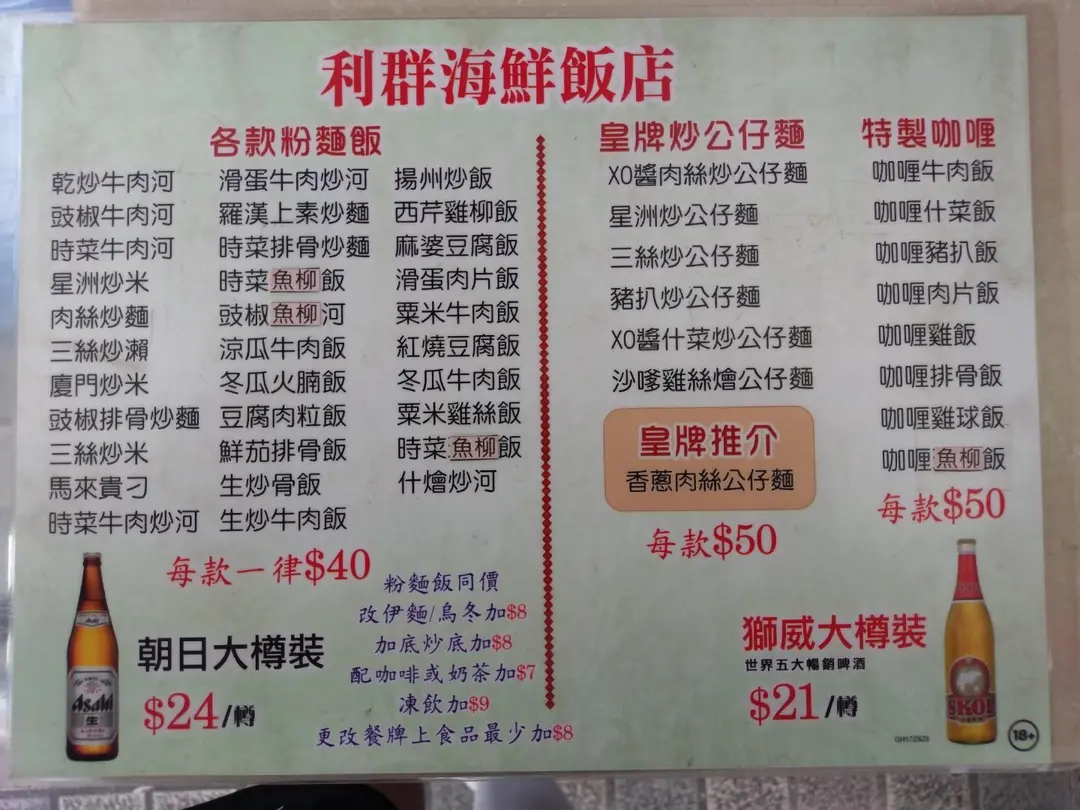 利群海鮮飯店
各款粉麵飯
乾炒牛肉河
豉椒牛肉河
時菜牛肉河
星洲炒米
肉絲炒麵
三絲炒瀨
廈門炒米
豉椒排骨炒麵
三絲炒米
馬來貴刁
時菜牛肉炒河
滑蛋牛肉炒河
羅漢上素炒麵
時菜排骨炒麵
時菜魚柳飯
豉椒魚柳河
涼瓜牛肉飯
冬瓜火腩飯
豆腐肉粒飯
鮮茄排骨飯
生炒骨飯
生炒牛肉飯
揚州炒飯
西芹雞柳飯
麻婆豆腐飯
滑蛋肉片飯
粟米牛肉飯
紅燒豆腐飯
冬瓜牛肉飯
粟米雞絲飯
時菜魚柳飯
什燴炒河
每款一律$40
粉麵飯同價
改伊麵/烏冬加$8
加底炒底加$8
配咖啡或奶茶加$7
凍飲加$9
更改餐牌上食品最少加$8
朝日大樽裝
$24/樽
Asahi
生
皇牌炒公仔麵
XO醬肉絲炒公仔麵
星洲炒公仔麵
三絲炒公仔麵
豬扒炒公仔麵
XO醬什菜炒公仔麵
沙嗲雞絲燴公仔麵
皇牌推介
香蔥肉絲公仔麵
每款$50
特製咖喱
咖喱牛肉飯
咖喱什菜飯
咖喱豬扒飯
咖喱肉片飯
咖喱雞飯
咖喱排骨飯
咖喱雞球飯
咖喱魚柳飯
每款$50
獅威大樽裝
世界五大暢銷啤酒
$21/樽
SKOL
18+